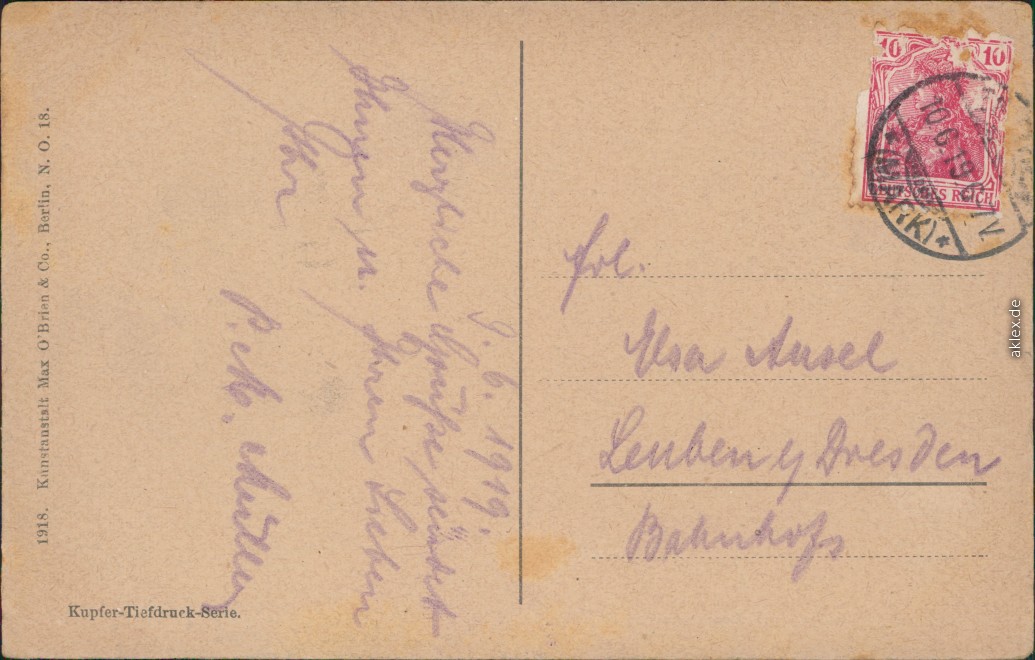 9. 6. 1919.
Herzliche Grüße sendet
Ihnen u. Ihren Lieben
Ihr
P. Müller
Frl.
Elsa Ansel
Leuben b/ Dresden
Bahnhofs
10 10
DEUTSCHES REICH
10.6.19
1918. Kunstanstalt Max O'Brien & Co., Berlin, N. O. 18.
Kupfer-Tiefdruck-Serie.
aklex.de